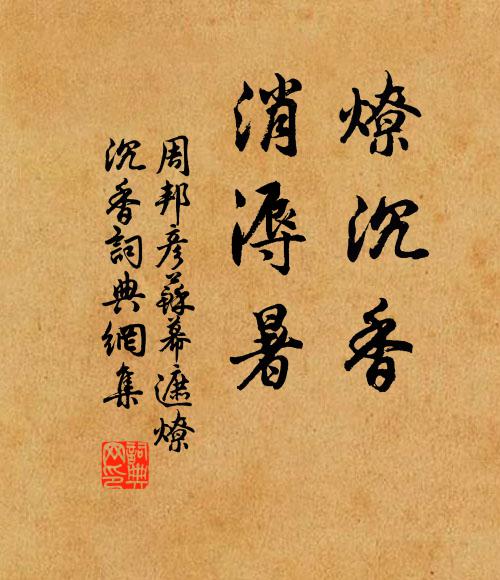 燎沉香
消溽暑
周邦彥蘇幕遮燎
沉香詞典網集
詞典
网印